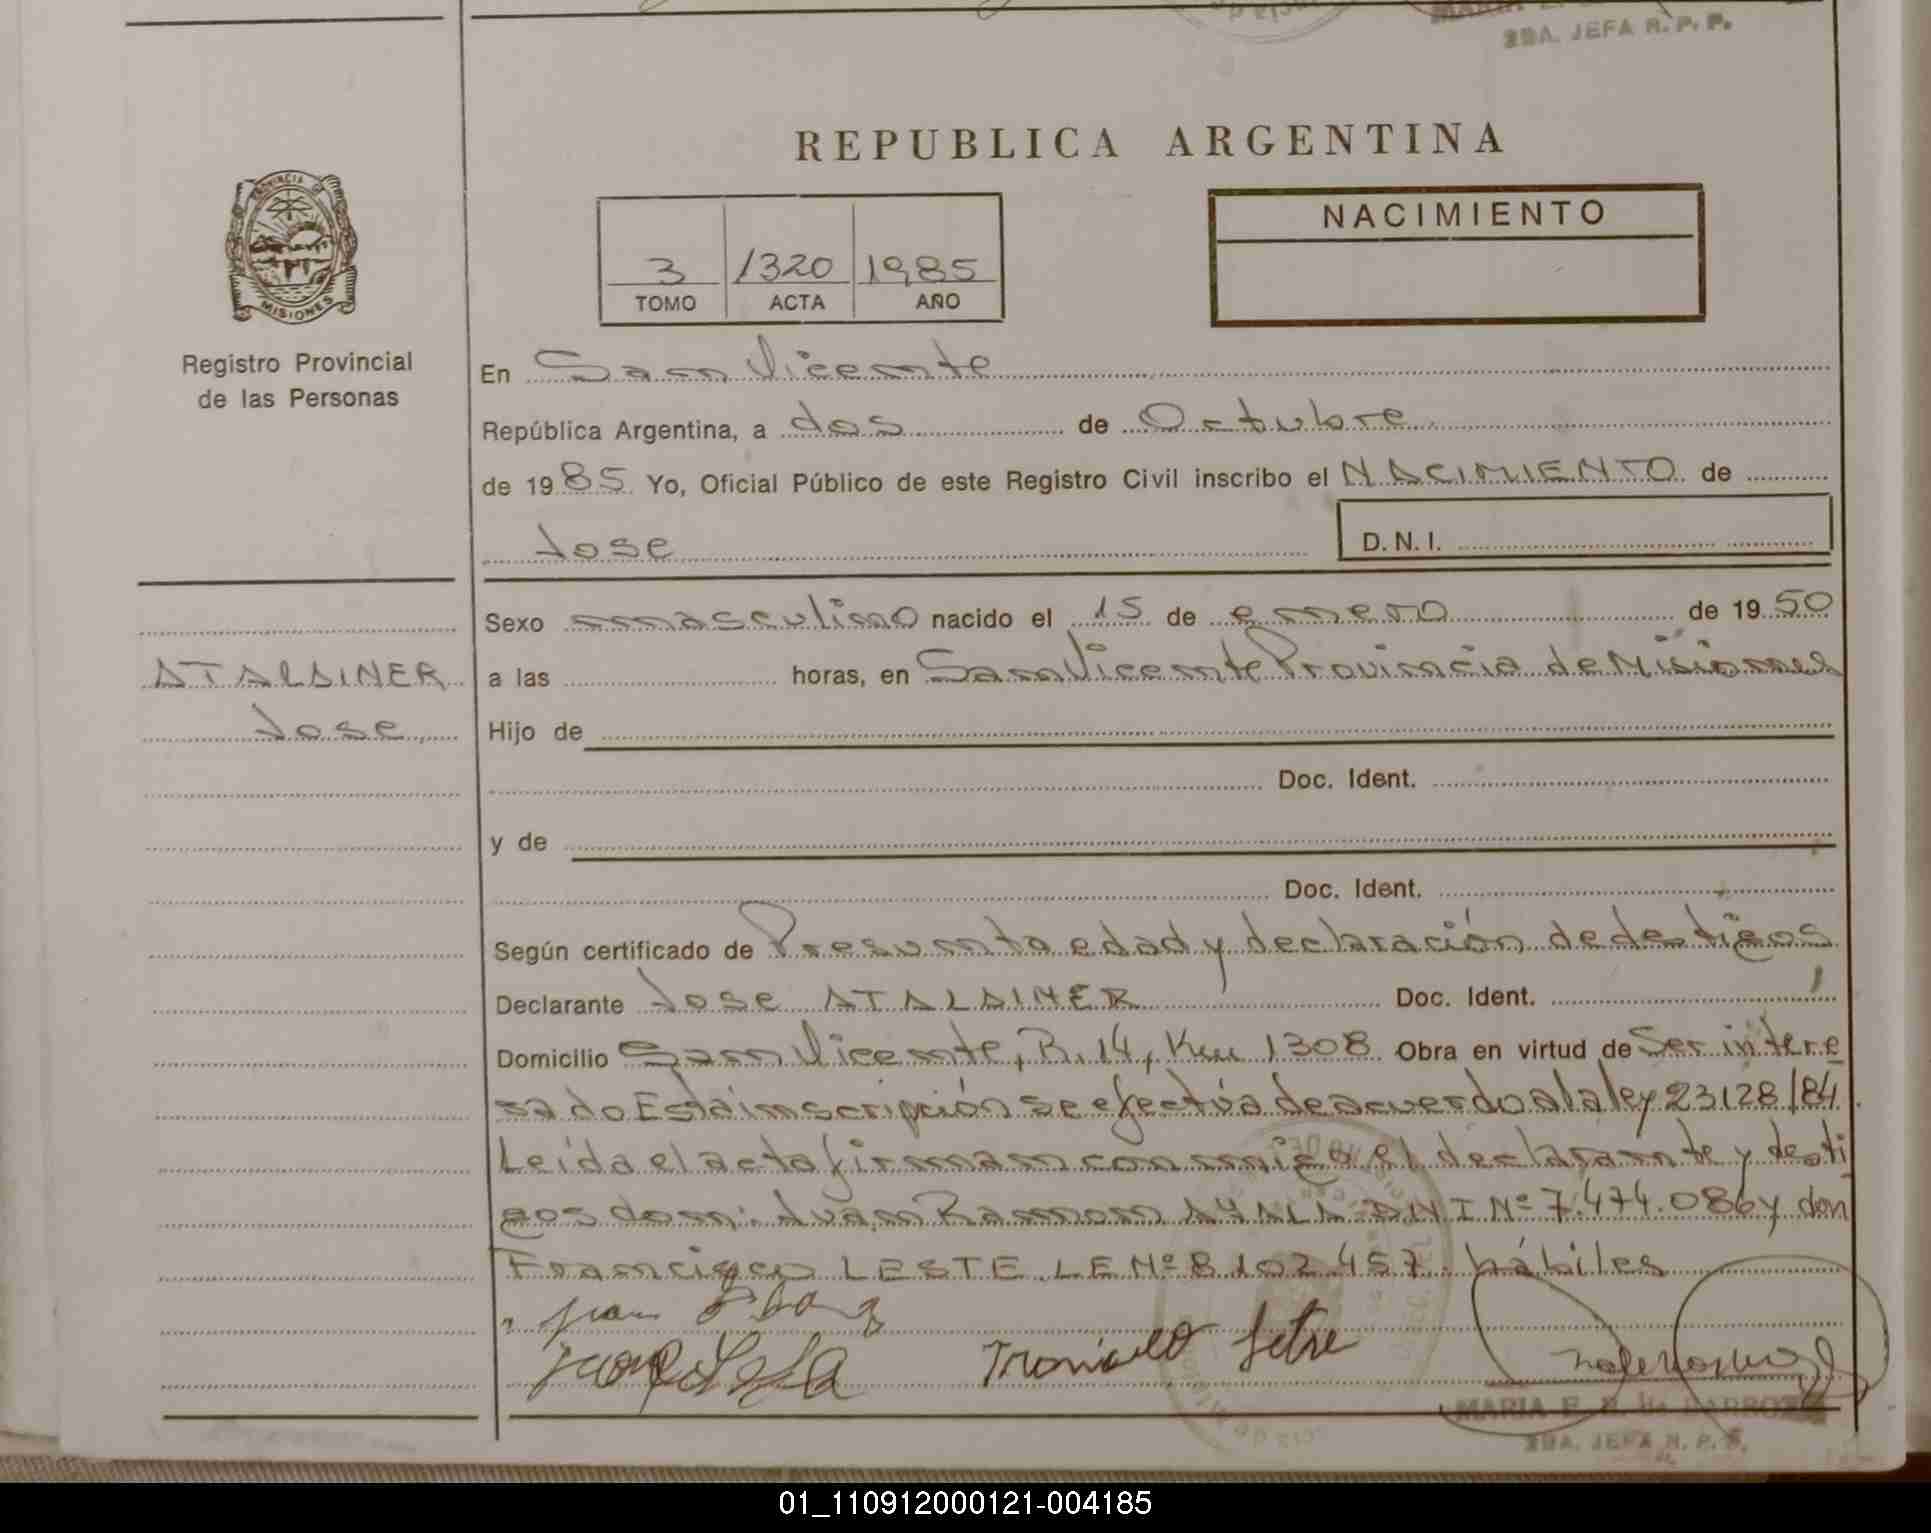 2DA. JEFA R. P. P.
REPUBLICA ARGENTINA
PROVINCIA DE
MISIONES
NACIMIENTO
3 1320 1985
TOMO ACTA AÑO
Registro Provincial
de las Personas
En San Vicente
República Argentina, a dos de Octubre
de 1985 Yo, Oficial Público de este Registro Civil inscribo el NACIMIENTO de
Jose D.N.I.
Sexo masculino nacido el 15 de enero de 1950
ATALAINER
Jose
a las horas, en San Vicente Provincia de Misiones
Hijo de
Doc. Ident.
y de
Doc. Ident.
Según certificado de Presunta edad y declaración de destigos
Declarante Jose ATALAINER Doc. Ident.
Domicilio San Vicente, R. 14, Km 1308 Obra en virtud de Ser intere
sado Esta inscripción se efectúa de acuerdo a la ley 23128/84
Leída el acta firman conmigo el declarante y testi
gos don: Juan Ramon AYALA DNI Nº 7.474.086 y don
Francisco LESTE LE Nº 8.102.457 hábiles
MARIA E. B. de BARROZO
2DA. JEFA R. P. P.
01_110912000121-004185